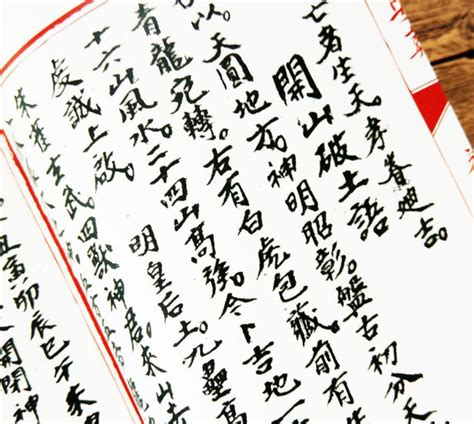 亡者生天。孝眷迪吉。
開山破土語
以。天圓地方。神明昭彰。盤古初分天
青龍宛轉。右有白虎包藏。前有
十六山風水。二十四山高強。今卜吉地一
虔誠上啟。 明皇后土。九壘高
朱雀玄武。四獸神君。來山去
丑寅卯辰巳午未
開閉神